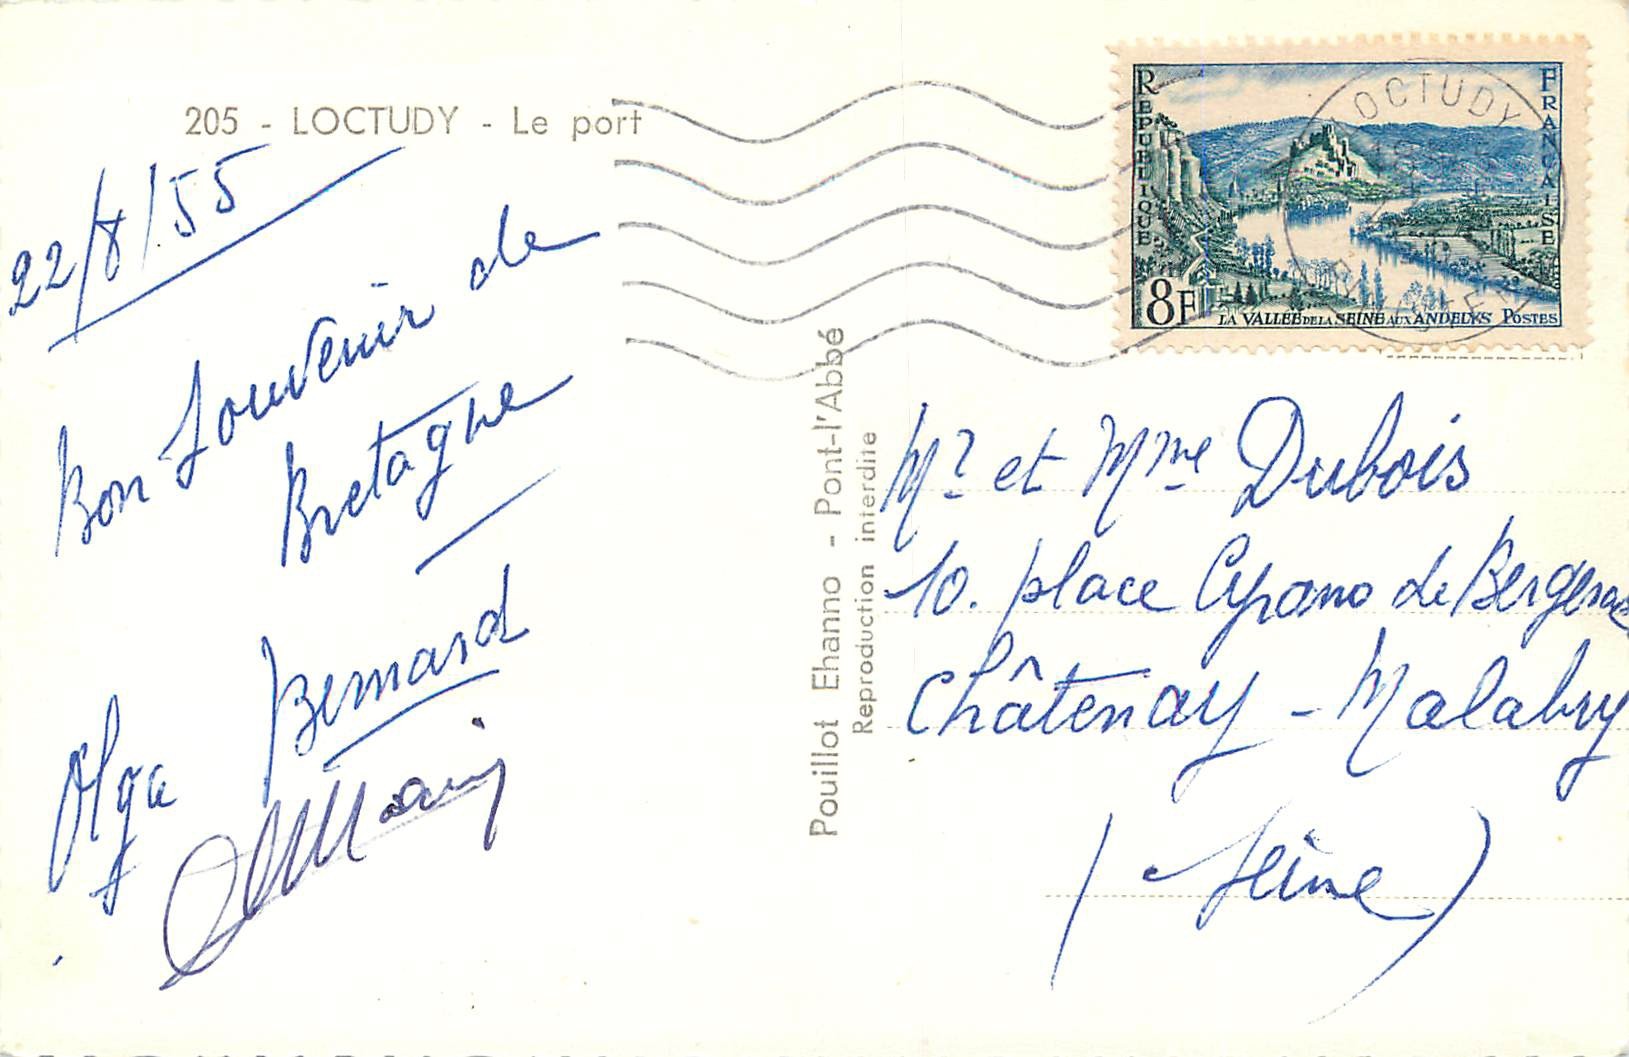 205 - LOCTUDY - Le port
22/8/55
Bon souvenir de
Bretagne
Olga Bernard
Pouillot Ehanno - Pont-l'Abbé
Reproduction interdite
RÉPUBLIQUE FRANÇAISE
8F LA VALLÉE DE LA SEINE AUX ANDELYS POSTES
LOCTUDY
FINISTERE
Mr et Mme Dubois
10. place Cyrano de Bergerac
Châtenay - Malabry
(Seine)